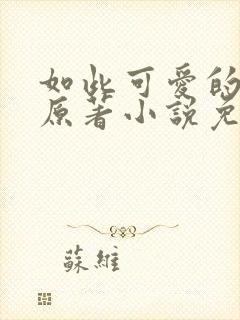 如此可愛的
原著小說免
蘇維